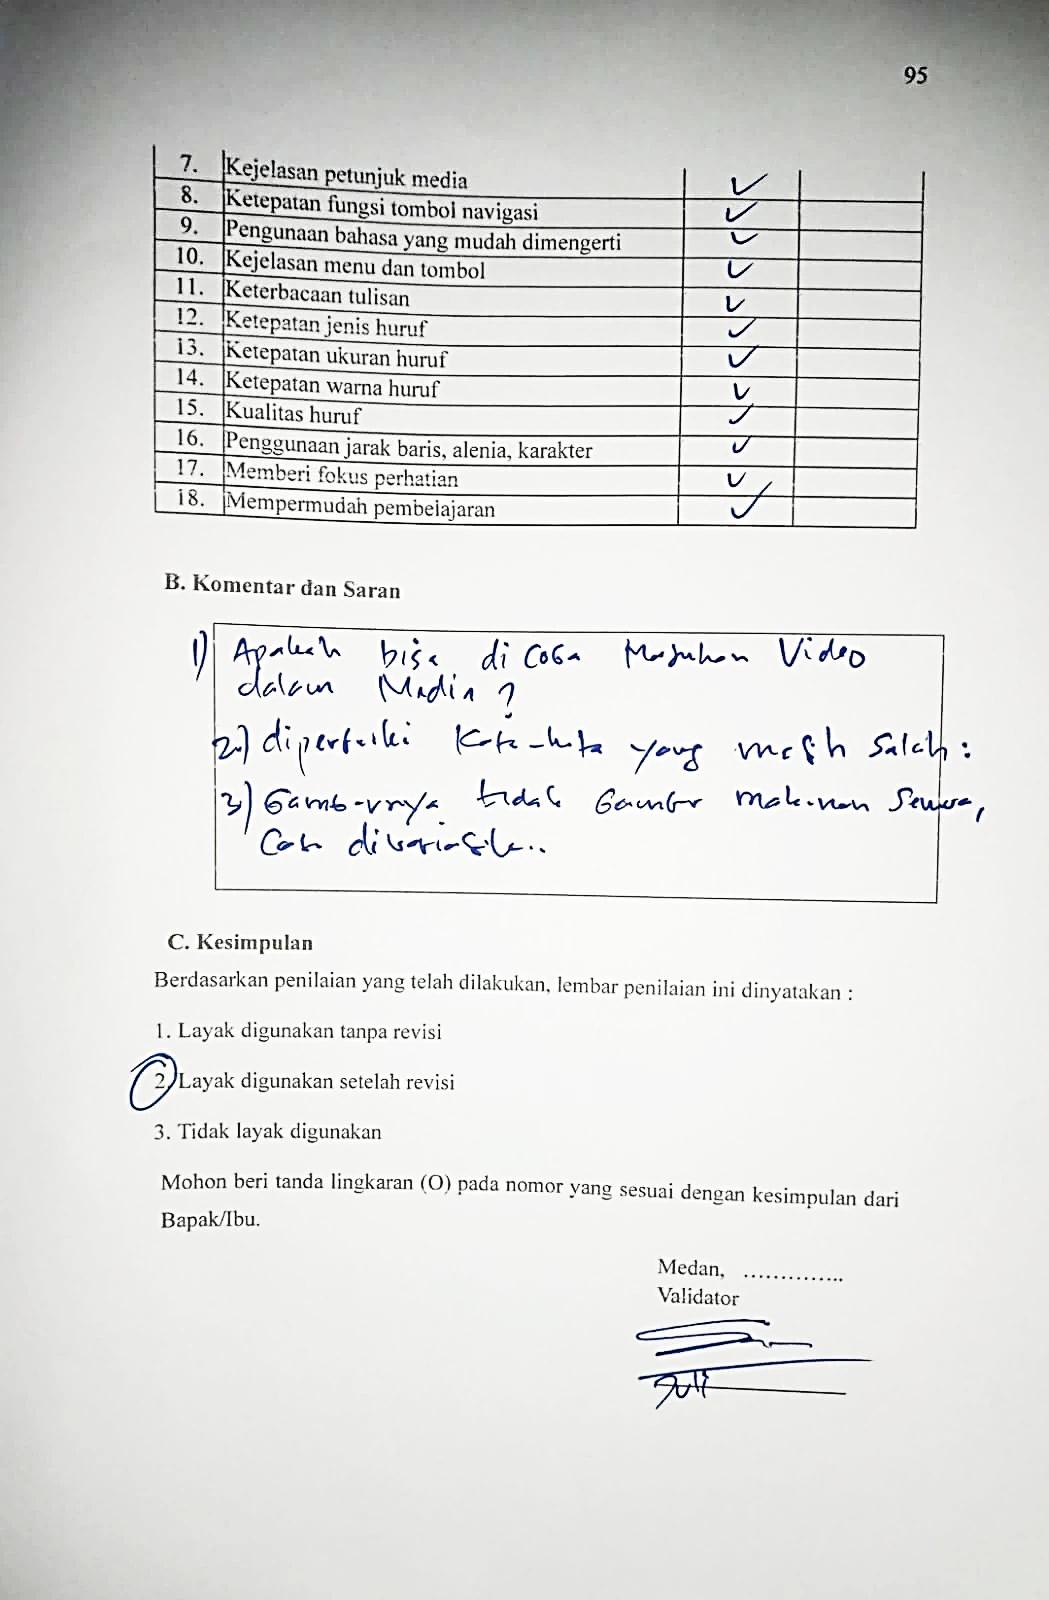 95
7. Kejelasan petunjuk media ✓
8. Ketepatan fungsi tombol navigasi ✓
9. Pengunaan bahasa yang mudah dimengerti ✓
10. Kejelasan menu dan tombol ✓
11. Keterbacaan tulisan ✓
12. Ketepatan jenis huruf ✓
13. Ketepatan ukuran huruf ✓
14. Ketepatan warna huruf ✓
15. Kualitas huruf ✓
16. Penggunaan jarak baris, alenia, karakter ✓
17. Memberi fokus perhatian ✓
18. Mempermudah pembelajaran ✓
B. Komentar dan Saran
1) Apakah bisa di coba Masukan Video
dalam Media ?
2) diperbaiki Kata-kata yang masih Salah :
3) Gambarnya tidak Gambar makanan Semua,
divariasikan..
C. Kesimpulan
Berdasarkan penilaian yang telah dilakukan, lembar penilaian ini dinyatakan :
1. Layak digunakan tanpa revisi
2. Layak digunakan setelah revisi
3. Tidak layak digunakan
Mohon beri tanda lingkaran (O) pada nomor yang sesuai dengan kesimpulan dari
Bapak/Ibu.
Medan, ..............
Validator